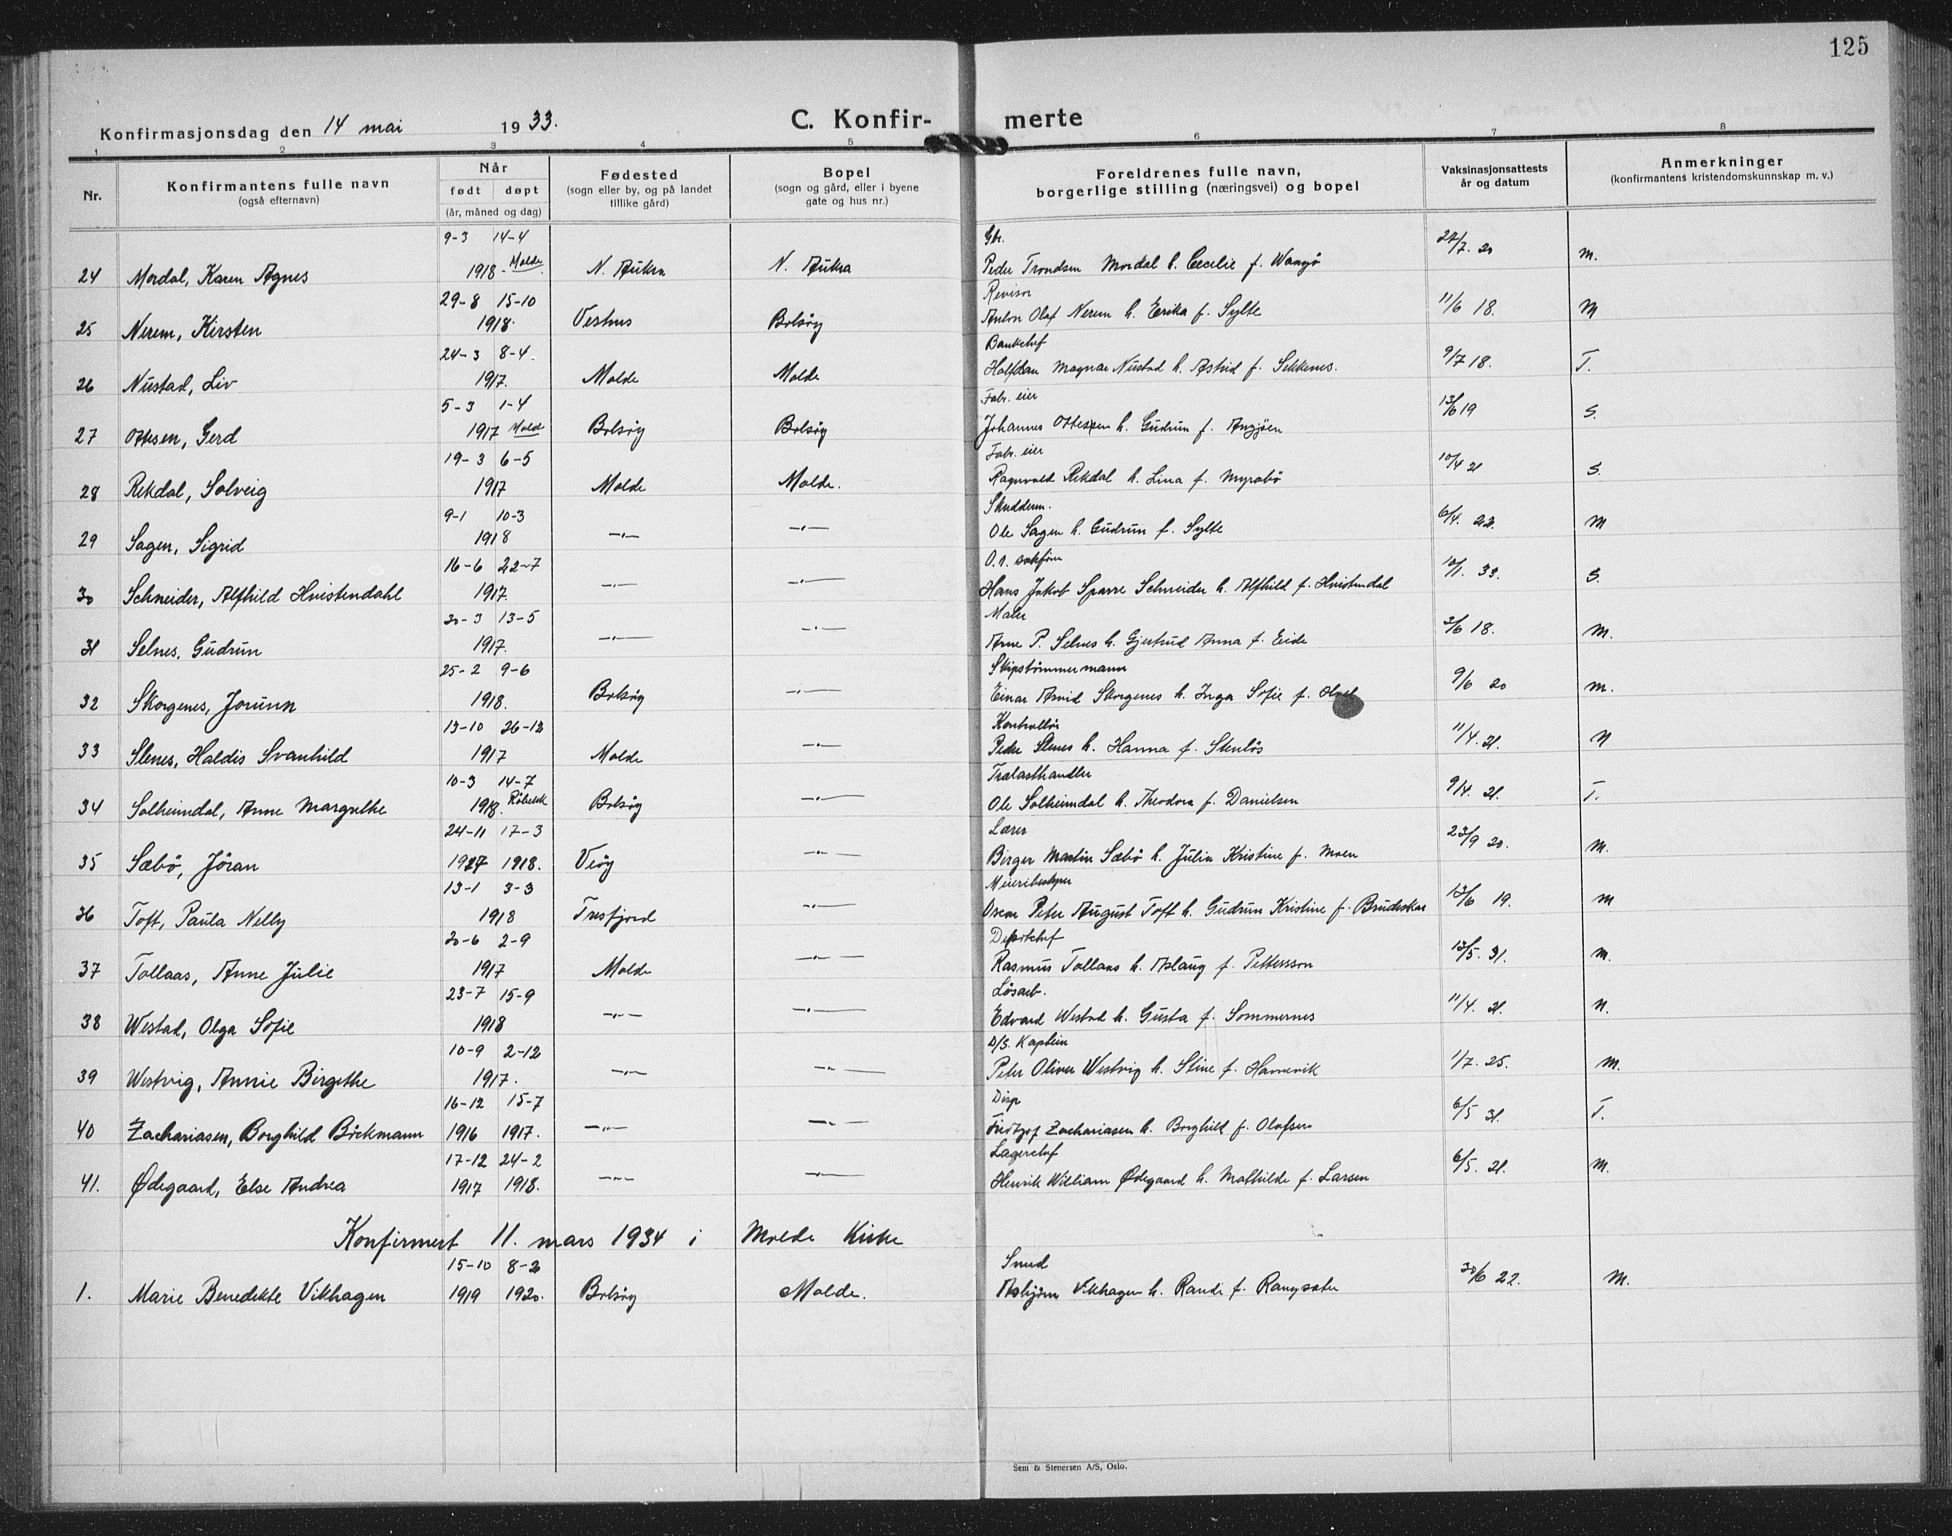 125
Konfirmasjonsdag den 14 mai 1933. C. Konfir- merte
1 2 3 4 5 6 7 8
Nr. Konfirmantens fulle navn (også efternavn) Når født døpt (år, måned og dag) Fødested (sogn eller by, og på landet tillike gård) Bopel (sogn og gård, eller i byene gate og hus nr.) Foreldrenes fulle navn, borgerlige stilling (næringsvei) og bopel Vaksinasjonsattests år og datum Anmerkninger (konfirmantens kristendomskunnskap m. v.)
9-3 14-4 Gbr.
24 Mordal, Karen Agnes 1918 Molde N. Aukra N. Aukra Peder Trondsen Mordal h. Cecilie f. Wangø 27/7. 20 M.
29-8 15-10 Revisor
25 Nerem, Kirsten 1918. Vestnes Bolsøy Anton Olaf Nerem h. Erika f. Sylte 11/6 18. M
24-3 8-4. Bankchef
26 Nustad, Liv 1917. Molde Molde Halfdan Magnar Nustad h. Astrid f. Sekkenes. 9/7 18. T.
5-3 1-4 Fabr. eier
27 Ottesen, Gerd 1917 Molde Bolsøy Bolsøy Johannes Ottesen h. Gudrun f. 13/6 19 S.
19-3 6-5 Fabr. eier
28 Rekdal, Solveig 1917 Molde Molde. Ragnvald Rekdal h. Lina f. Myrabø 10/4 21 S.
9-1 10-3
29 Sagen, Sigrid 1918 —"— —"— Ole Sagen h. Gudrun f. Sylte 6/4. 22. M
16-6 22-7 O.r. sakfører
30 Schneider, Alfhild Hvistendahl 1917. —"— —"— Hans Jakob Sparre Schneider h. Alfhild f. Hvistendal 10/1. 33. S.
20-3 13-5 Maler
31 Selnes, Gudrun 1917. —"— —"— Arne P. Selnes h. Gjertrud Anna f. Eide 3/6 18. M.
25-2 9-6 Skipstømmermann
32 Skorgenes, Jorunn 1918. Bolsøy —"— Einar Arvid Skorgenes h. Inga Sofie f. 9/6 20 M.
13-10 26-12 Kontrollør
33 Slenes, Haldis Svanhild 1917 Molde —"— Peder Slenes h. Hanna f. Stenløs 11/4. 21. N
10-3 14-7 Trælasthandler
34 Solheimdal, Anne Margrethe 1918. Røbekk Bolsøy —"— Ole Solheimdal h. Theodora f. Danielsen 9/4. 21. T.
24-11 17-3 Lærer
35 Sæbø, Jøran 1917 1918. Veøy —"— Birger Martin Sæbø h. Julia Kristine f. Moen 23/9 20. M.
13-1 3-3 Meieribestyrer
36 Toft, Paula Nelly 1918 Tresfjord —"— Oscar Peter August Toft h. Gudrun Kristine f. Brudeskar 13/6 19. M
20-6 2-9
37 Tollaas, Anne Julie 1917 Molde —"— Rasmus Tollaas h. Aslaug f. Pettersson 13/5. 31. M.
23-7 15-9 Løsarb.
38 Westad, Olga Sofie 1918 —"— —"— Edvard Westad h. Gusta f. Sommernes 11/4. 21. N.
10-9 2-12 D/S. Kaptein
39 Westvig, Annie Birgethe 1917. —"— —"— Peter Oliver Westvig h. Stine f. Hamnevik 1/7. 25. M.
16-12 15-7 Disp
40 Zachariasen, Borghild Bøckmann 1916 1917. —"— —"— Fridtjof Zachariasen h. Borghild f. Olafsen 6/5 31. T.
17-12 24-2 Lagerchef
41. Ødegaard, Else Andrea 1917 1918. —"— —"— Henrik William Ødegaard h. Mathilde f. Larsen 6/5. 21. M.
Konfirmert 11. mars 1934 i Molde Kirke
15-10 8-2 Smed
1. Marie Benedikte Vikhagen 1919 1920. Bolsøy Molde. Asbjørn Vikhagen h. Randi f. Rangsæter 30/6 22. M.
Sem & Stenersen A/S, Oslo.